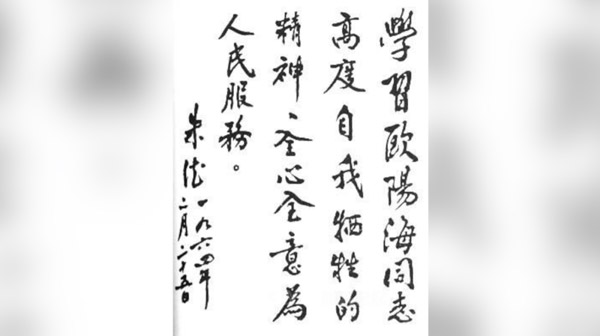 學習歐陽海同志
高度自我牺牲的
精神、全心全意為
人民服務。
朱德
一九六四年
二月二十五日